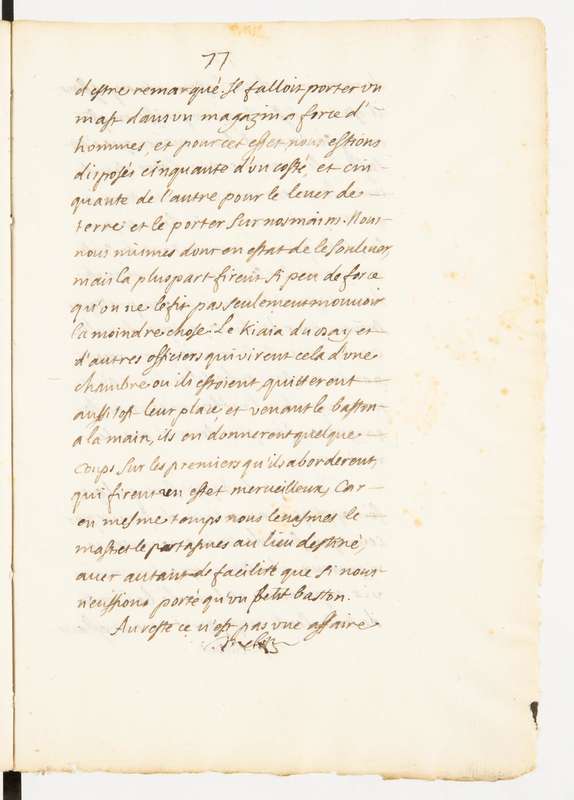 77
d'estre remarqué. Il falloit porter un
mast dans un magazin a force d'
hommes, et pour cet effet nous estions
disposés cinquante d'un costé, et cin
quante de l'autre pour le lever de
terre et le porter sur nos mains. Nous
nous mismes donc en estat de le soulever,
mais la pluspart firent si peu de force
qu'on ne le fit pas seulement mouvoir
la moindre chose. Le Kiaia du Bay et
d'autres officiers qui virent cela d'une
chambre ou ils estoient, quitterent
aussitost leur place, et venant le baston
a la main, ils en donnerent quelque
coups sur les premiers qu'ils aborderent,
qui firent un effet merveilleux, Car
en mesme temps nous levasmes le
mast et le portasmes au lieu destiné,
avec autant de facilité que si nous
n'eussions porté qu'un petit baston.
Au reste ce n'est pas une affaire